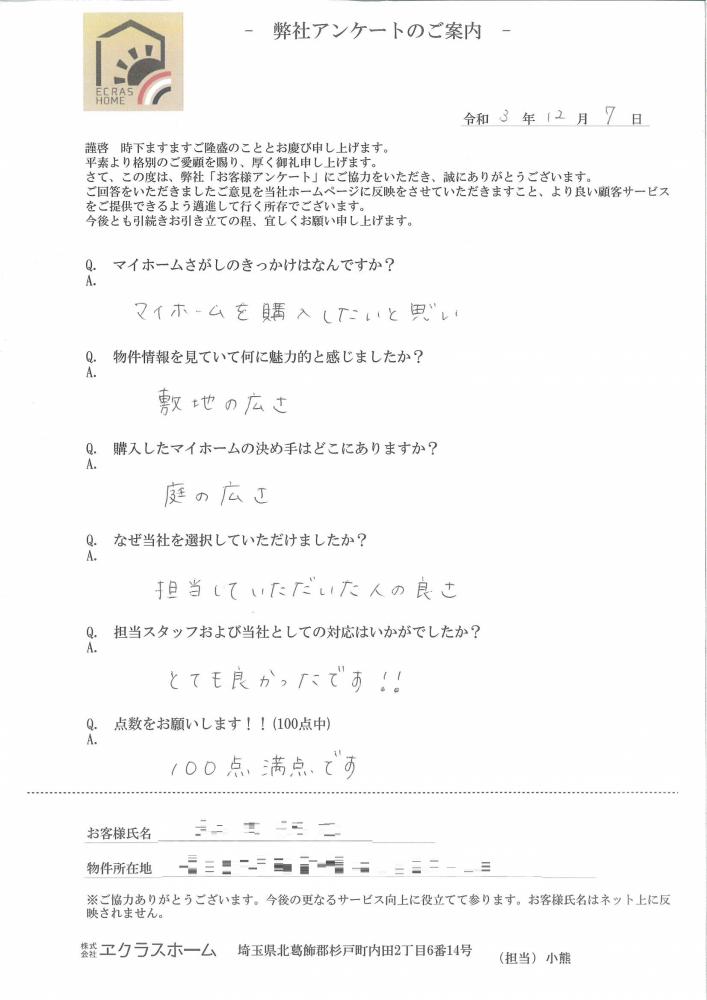 ECRAS
HOME
- 弊社アンケートのご案内 -
令和 3 年 12 月 7 日
謹啓　時下ますますご隆盛のこととお慶び申し上げます。
平素より格別のご愛顧を賜り、厚く御礼申し上げます。
さて、この度は、弊社「お客様アンケート」にご協力をいただき、誠にありがとうございます。
ご回答をいただきましたご意見を当社ホームページに反映をさせていただきますこと、より良い顧客サービス
をご提供できるよう邁進して行く所存でございます。
今後とも引続きお引き立ての程、宜しくお願い申し上げます。
Q.　マイホームさがしのきっかけはなんですか？
A.
マイホームを購入したいと思い
Q.　物件情報を見ていて何に魅力的と感じましたか？
A.
敷地の広さ
Q.　購入したマイホームの決め手はどこにありますか？
A.
庭の広さ
Q.　なぜ当社を選択していただけましたか？
A.
担当していただいた人の良さ
Q.　担当スタッフおよび当社としての対応はいかがでしたか？
A.
とても良かったです!!
Q.　点数をお願いします！！(100点中)
A.
100点満点です
お客様氏名
物件所在地
※ご協力ありがとうございます。今後の更なるサービス向上に役立てて参ります。お客様氏名はネット上に反
映されません。
株式会社 ヱクラスホーム　埼玉県北葛飾郡杉戸町内田2丁目6番14号　（担当）小熊